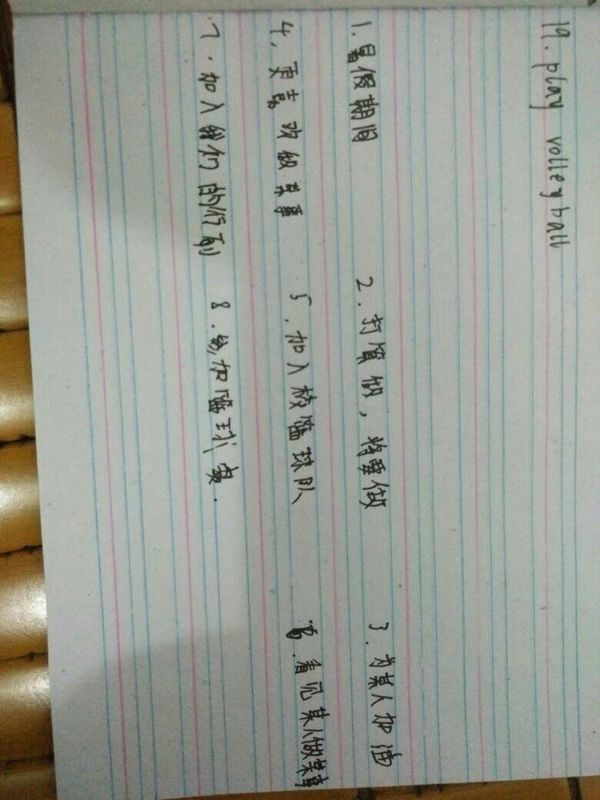 19. play volleyball
1. 暑假期间 2. 打算做，将要做 3. 为某人加油
4, 更喜欢做某事 5. 加入校篮球队 6. 看见某人做某事
7. 加入我们的行列 8. 参加篮球赛.